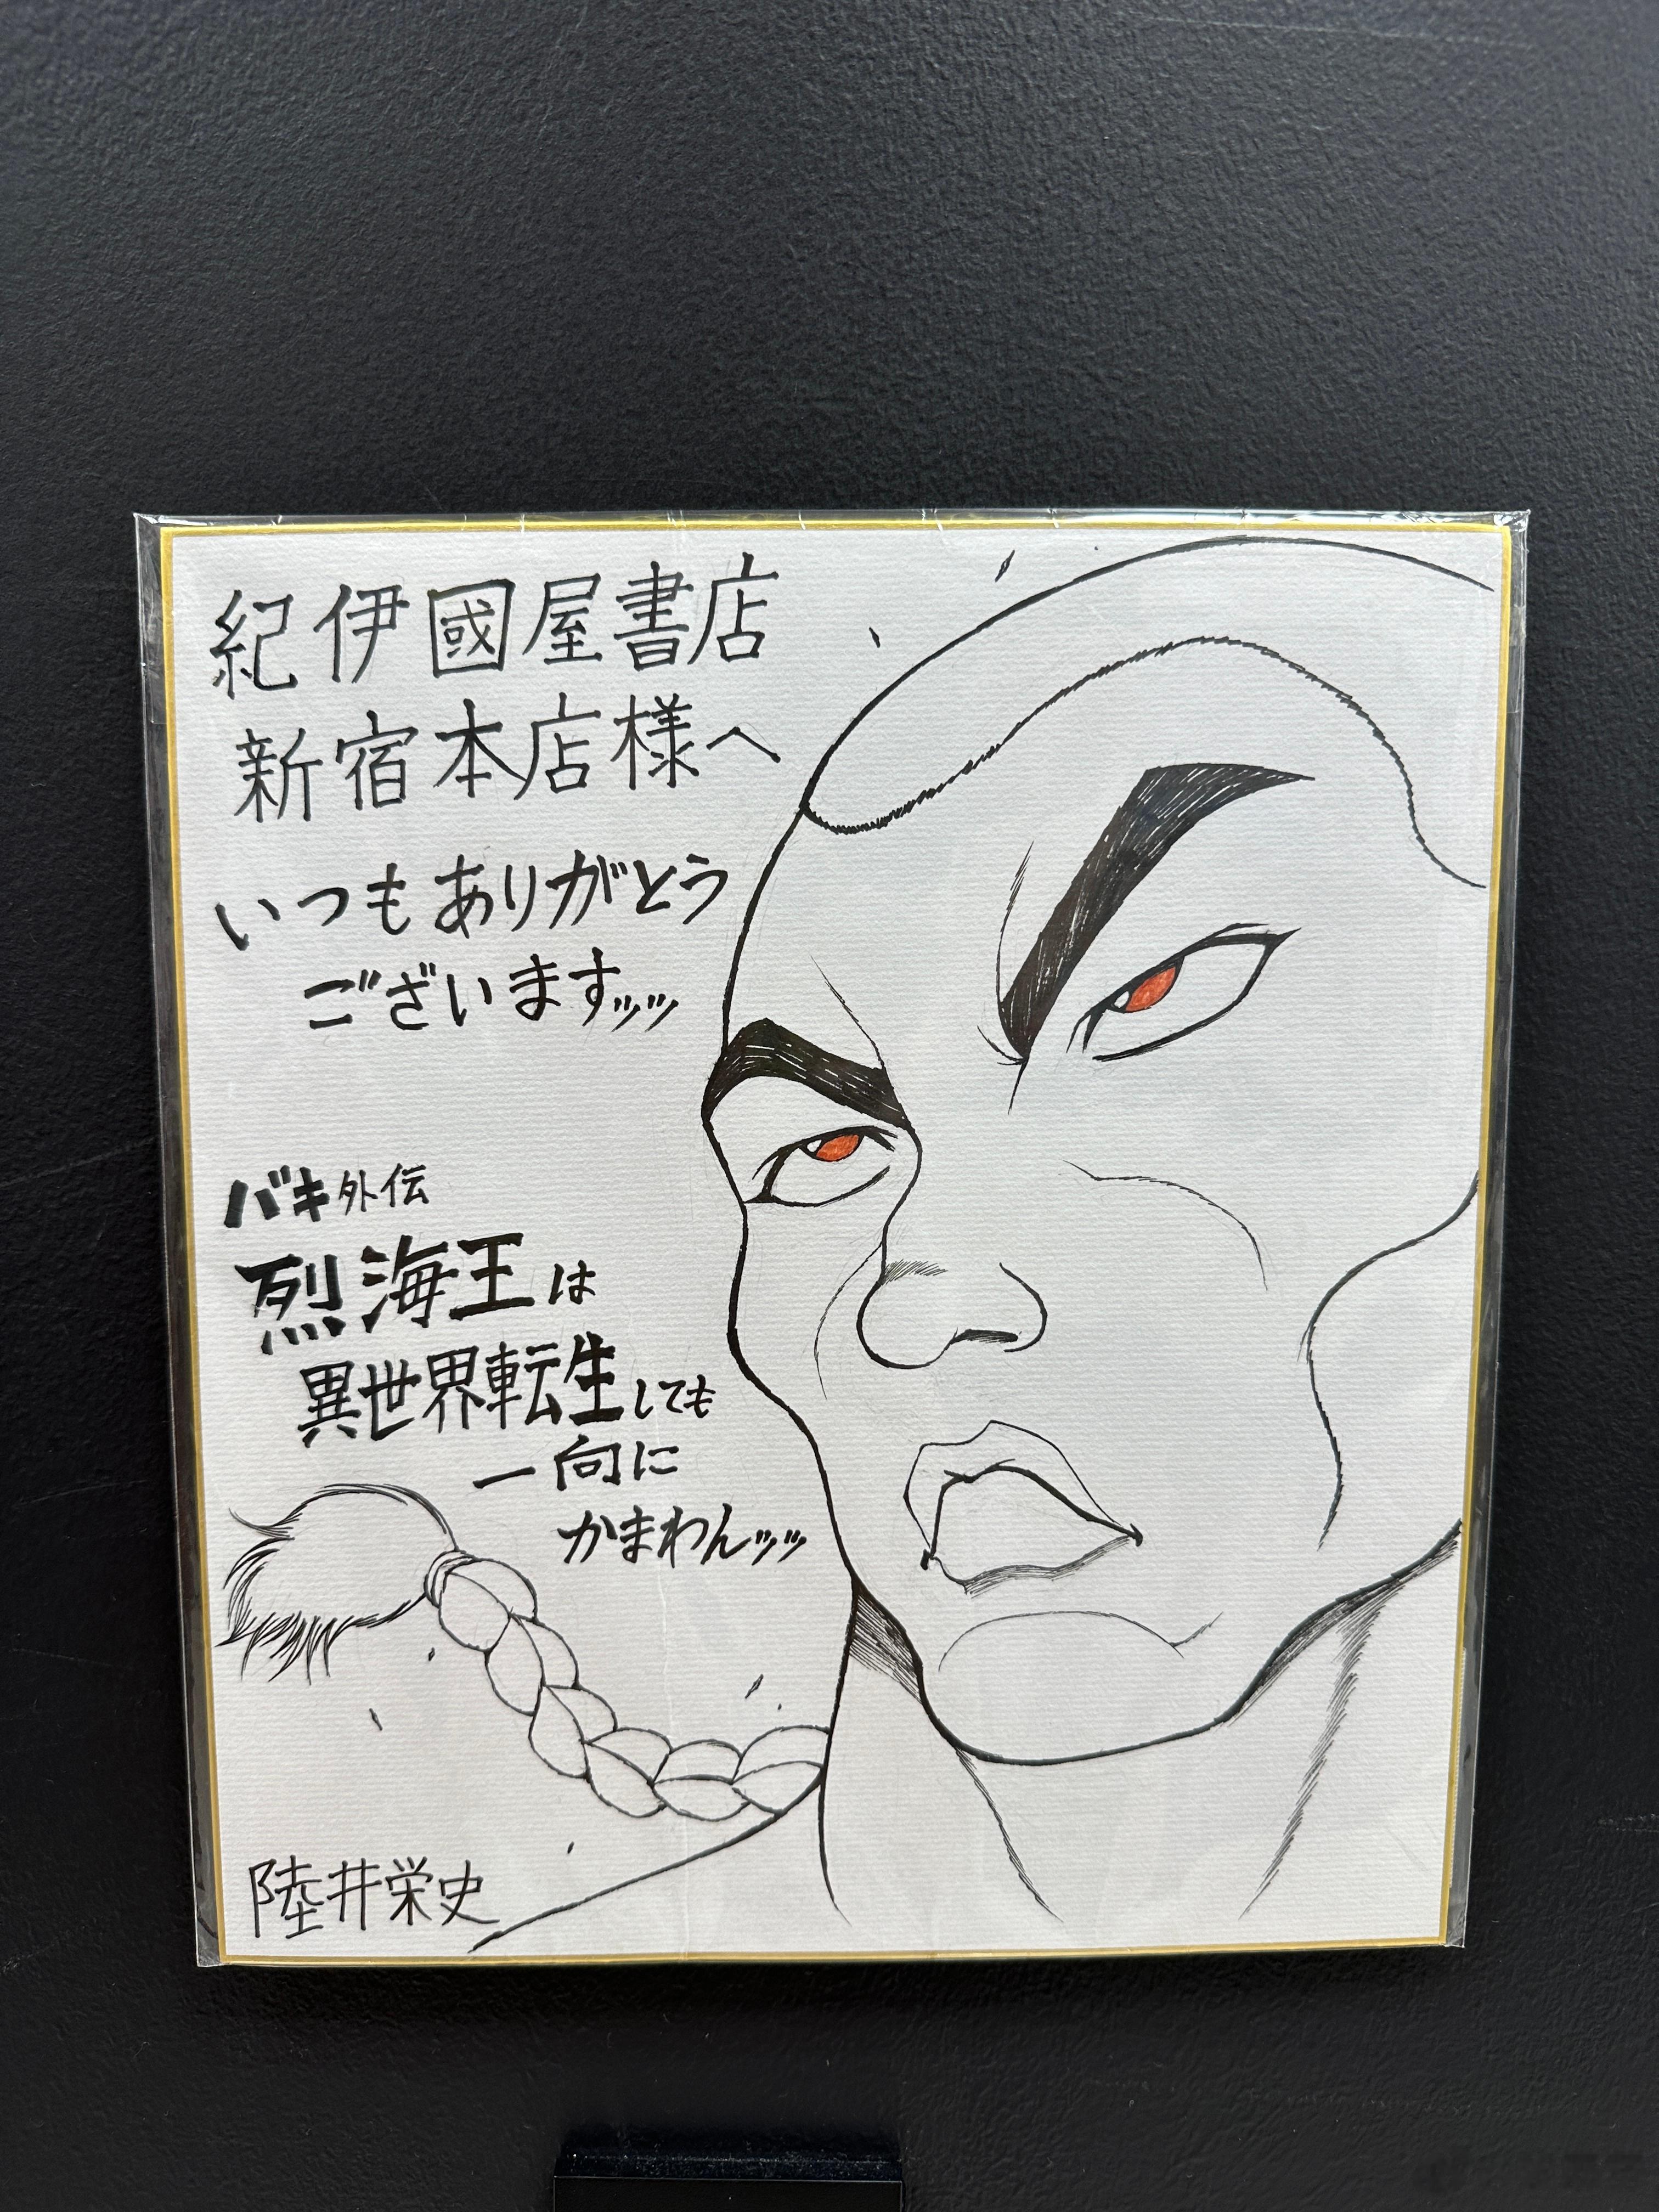 紀伊國屋書店
新宿本店様へ
いつもありがとう
ございますッッ
バキ外伝
烈海王は
異世界転生しても
一向に
かまわんッッ
陸井栄史